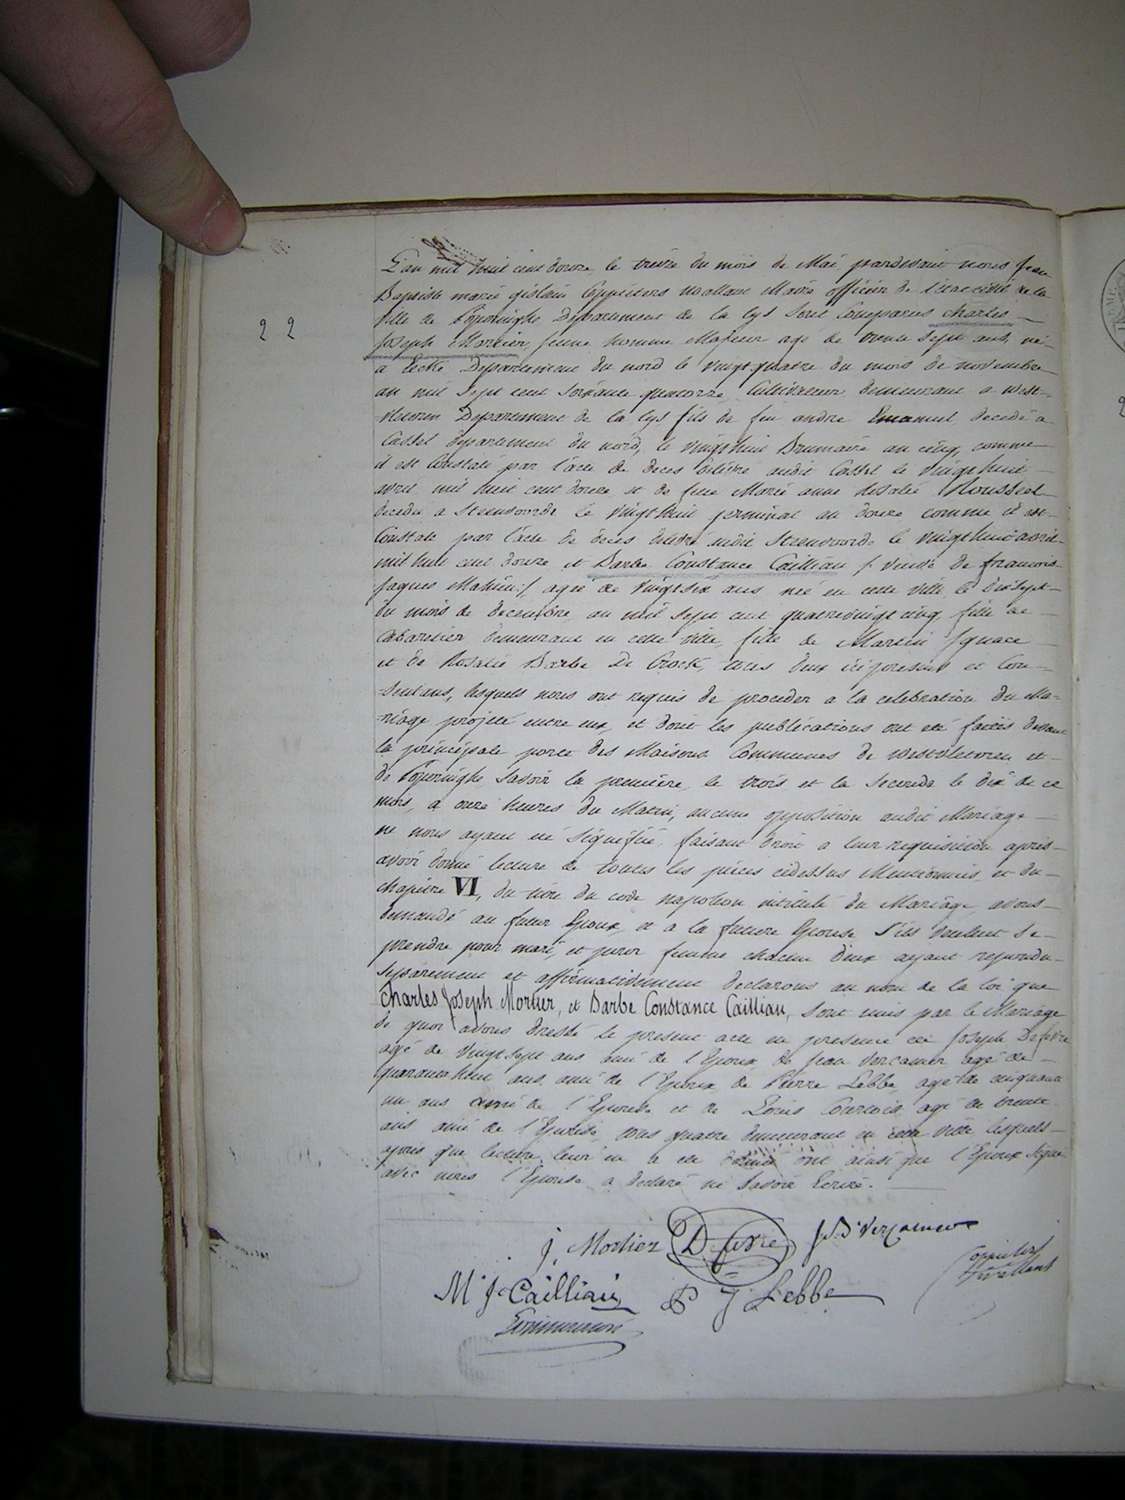 L'an mil huit cent douze le treize du mois de Mai pardevant nous Jean
Baptiste marie gislain Coppieters Wallant Maire officier de l'état civil de la
Ville de Poperinghe Département de la Lys Sont Comparus Charles
22
Joseph Mortier, jeune homme Majeur age de trente sept ans, né
a Département du nord le vingt quatre du mois de novembre
an mil sept cent soixante quatorze Cultivateur demeurant a west-
vleteren Departement de la Lys fils de feu andre Emanuel decedé a
Cassel département du nord, le vingt huit Brumaire an cinq, comme
il est Constaté par l'acte de deces délivré audit Cassel le vingt huit
avril mil huit cent douze et de feue Marie anne Rosalie Roussel
decedee a Steenvoorde le vingt huit germinal an douze comme il est
Constaté par l'acte de décès délivré audit Steenvoorde le vingt huit avril
mil huit cent douze et Barbe Constance Cailliau / veuve de francois
Jaques Mahieu /, agée de vingt six ans née en cette ville le dix sept
du mois de decembre an mil sept cent quatre vingt cinq, fille de
Cabaretier demeurant en cette ville, fille de Martin Ignace
et de Rosalie Barbe De Crock, tous deux ici presens et Con-
sentans, lesquels nous ont requis de proceder a la celebration du Ma-
riage projeté entre eux, et dont les publications ont été faites devant
la principale porte des Maisons Communes de westvleteren et
de Poperinghe Savoir la première le trois et la seconde le dix de ce
mois, a onze heures du Matin, aucune opposition audit Mariage
ne nous ayant été Signifiée, faisant droit a leur requisition après
avoir donné lecture de toutes les pièces cidessus Mentionnées et du
chapitre VI, du titre du code napoléon intitulé du Mariage avons
demandé au futur Epoux et a la future Epouse S'ils veulent se
prendre pour mari, et pour femme chacun d'eux ayant repondu
séparement et affirmativement declarons au nom de la loi que
Charles Joseph Mortier, et Barbe Constance Cailliau, Sont unis par le Mariage
de quoi avons dressé le present acte en presence de Joseph Defevre
agé de vingt sept ans ami de l'Epoux de Jean Vercamer agé de
quarante huit ans, ami de l'Epoux, de Pierre Lebbe, agé de cinquante
un ans ami de l'Epouse et de Louis Courtois agé de trente
ans ami de l'Epouse, tous quatre demeurant en cette ville lesquels
apres que lecture leur en a été donné ont ainsi que l'Epoux Signé
avec nous l'Epouse a declaré ne Savoir Ecrire.
J. Mortier Defevre J: B: Vercamer
M J: Cailliau P J Lebbe